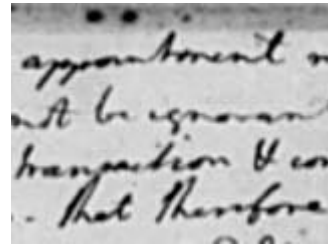 appointment
not be ignoran
transaction & con
. that therefore